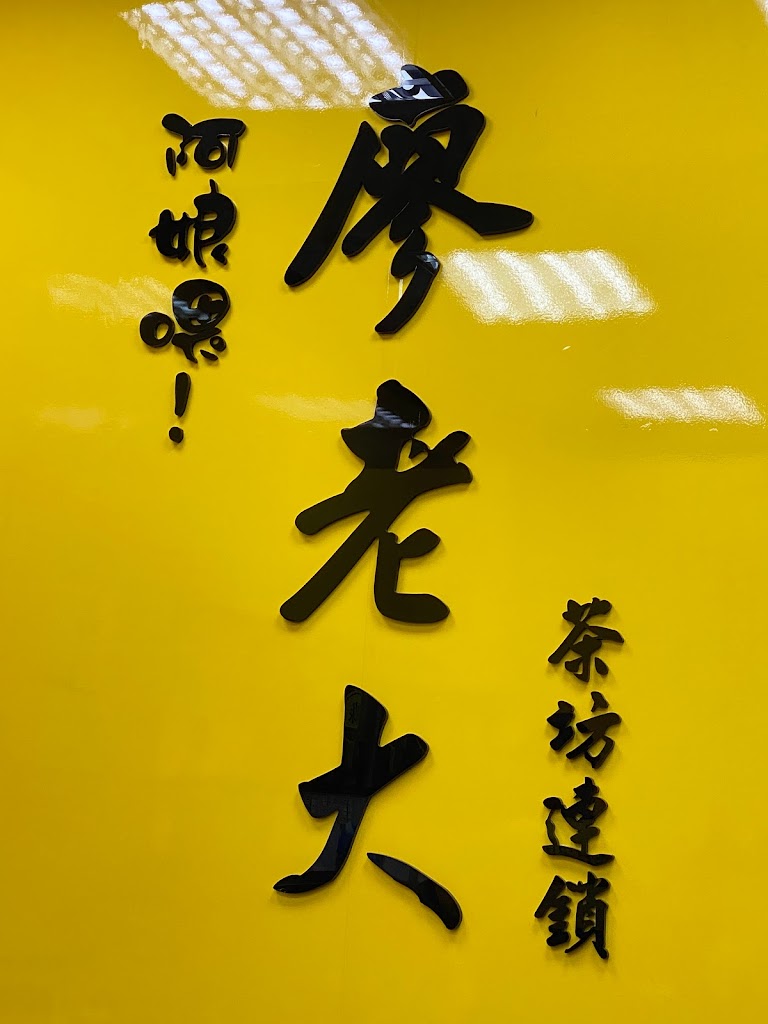 阿娘嘿!
廖老大
茶坊連鎖